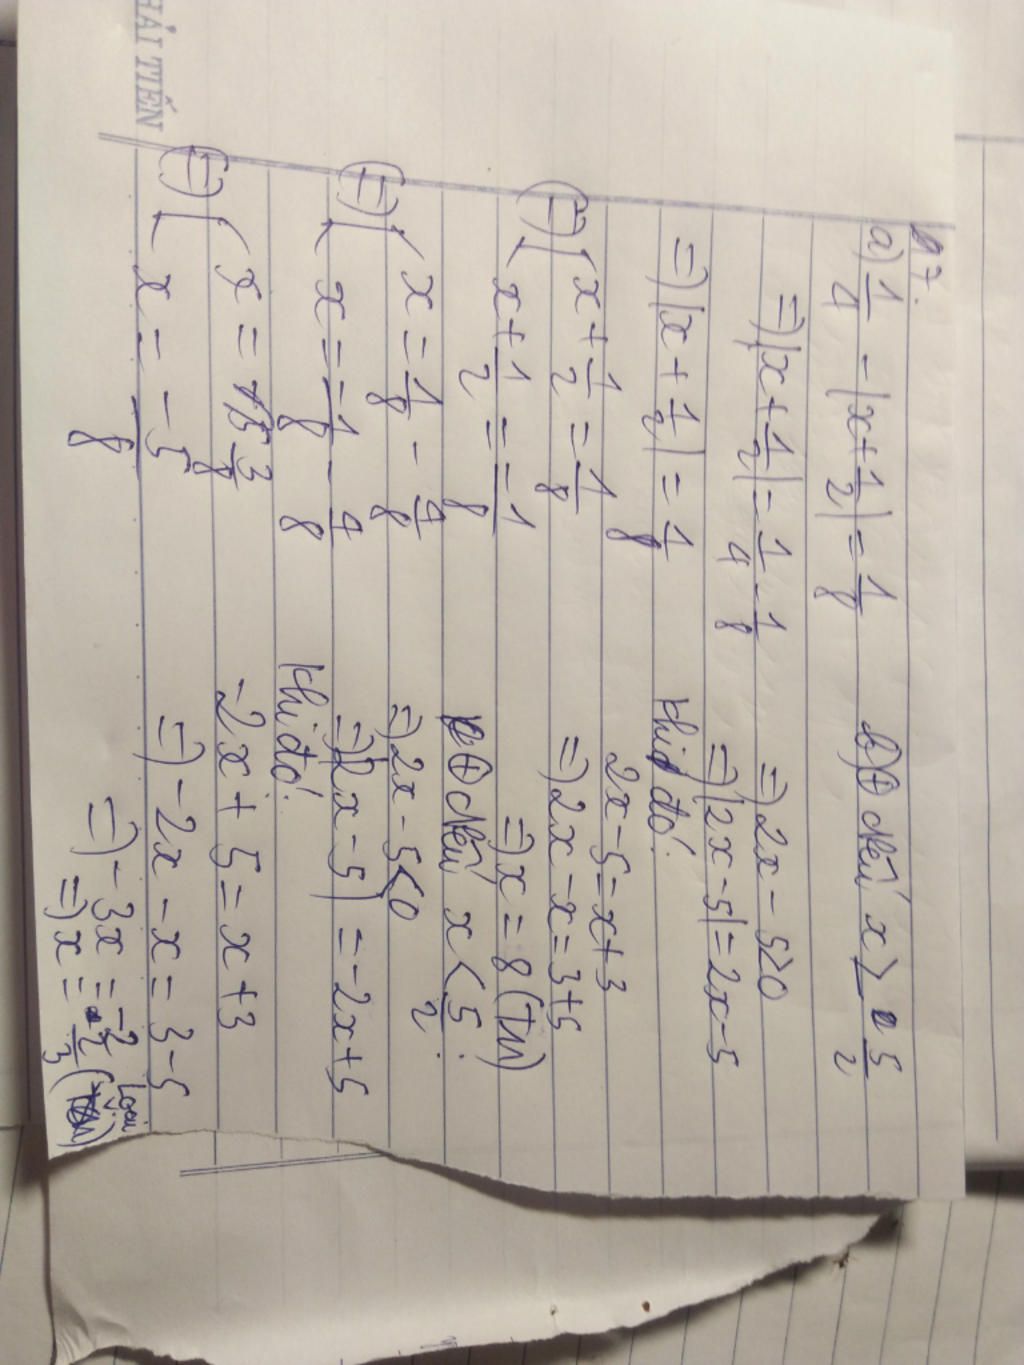 HẢI TIẾN
B7.
a) 1/4 - |x + 1/2| = 1/8
=> |x + 1/2| = 1/4 - 1/8
=> |x + 1/2| = 1/8
=> [ x + 1/2 = 1/8
x + 1/2 = -1/8
=> [ x = 1/8 - 4/8
x = -1/8 - 4/8
=> [ x = -3/8
x = -5/8
b) + Nếu x ≥ 5/2
=> 2x - 5 ≥ 0
=> |2x - 5| = 2x - 5
khi đó:
2x - 5 = x + 3
=> 2x - x = 3 + 5
=> x = 8 (TM)
+ Nếu x < 5/2:
=> 2x - 5 < 0
=> |2x - 5| = -2x + 5
khi đó:
-2x + 5 = x + 3
=> -2x - x = 3 - 5
=> -3x = -2
=> x = 2/3 (Loại)